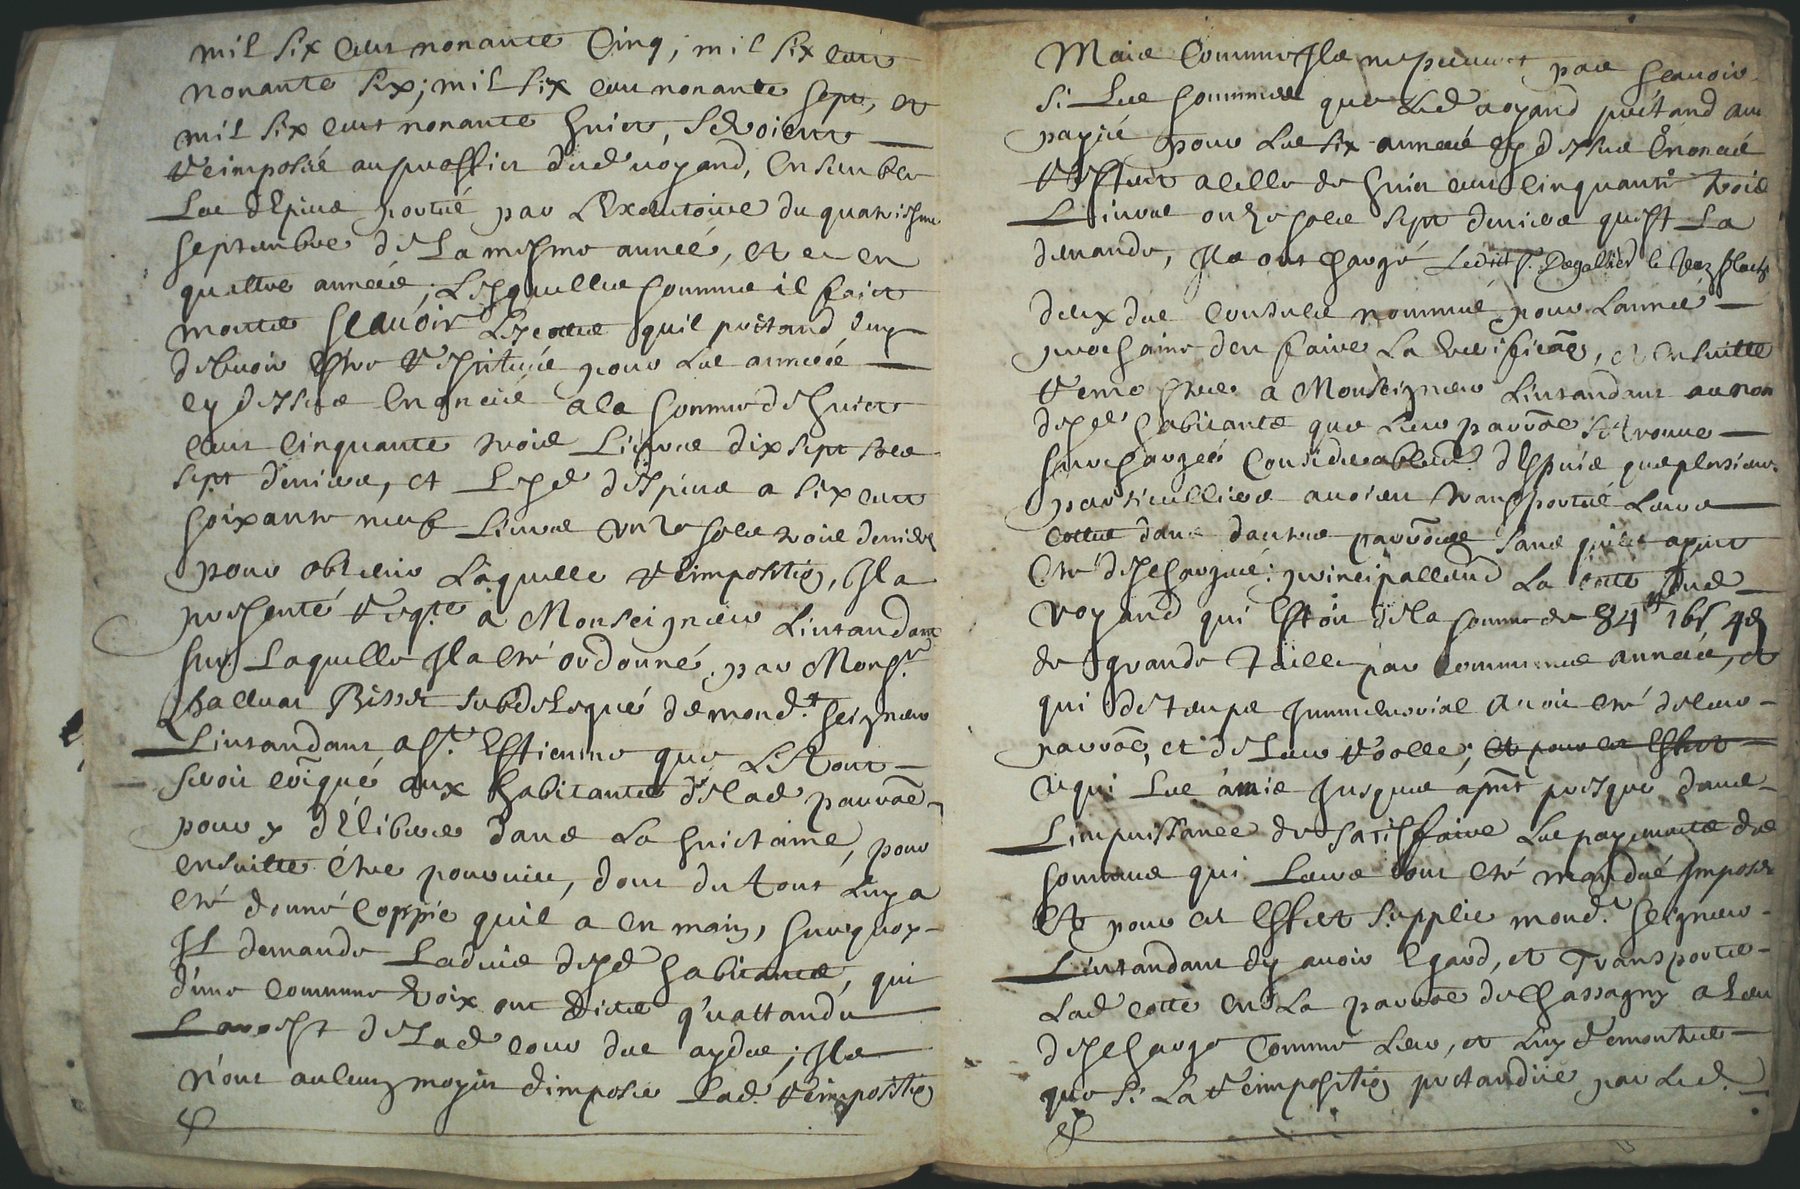 mil six cens nonante Cinq, mil six cens
nonante six, mil six cens nonante sept, et
mil six cens nonante huict, seroient
reimposéé au proffict dud voyand, Ensemble
Les dEpens portés par LExecutoire du quatriesme
septembre de La mesme année, et ce en
quattre années, Lesquelles sommes il faict
monter scavoir Les cottes quil prétand luy
debvoir Estre pour Les années
cy dessus Enoncéé a la somme de huict
cens cinquante trois Livres dix sept sols
sept deniers, et Lesd despens a six cens
soixante neuf Livres unze sols trois deniers
pour obtenir Laquelle reimpositiõ, Il a
presenté reqte a Monseigneur Lintandant
sur Laquelle Il a été ordonné par Monsr
Bisset subdelegué de mond.t seigneur
Lintandant a St. Estienne que Le tout
seroit cõiqué aux habitants de lad parroẽ
pour y délibérer dans La huictaine, pour
ensuitte être pourveu, dont du tout Luy a
été donné Coppie quil a en main, surquoy
Il demande Ladvis desd habitants, qui
dune commune voix ont dict qu'attandu
Larrest de Lad cour des aydes, Ils
n'ont aulcung moyen dimposer Lad. reimpositiõ
Mais Comme Ils ne peuvent pas scavoir
si Les sommes que Led voyand prétand avoir
payéé pour Les six années cy dessus Enoncéé
a celle de huict cens cinquante trois
Livres sols sept deniers quest La
demande, Ils ont chargé Ledict Sr. Degallier
deux des Consuls nommés pour Lannée
prochaine den faire La verificaõn, et Ensuitte
remontrer a Monseigneur Lintandant au nom
desd habitants que Leur parroẽ se trouve
surchargéé Considerablemt. despuis que plusieurs
particulliers avoient transporté Leurs
cottes dans dautres parroisses sans quils ayent
été deschargés; principallemt La cotte dud
voyand qui Estoit de la somme de 84lt 16s 4d
de grande taille par communes années, et
qui de temps Immemorial avoit été de leur
parroẽ, et de Leur roolle, et pour cet Effect
ce qui Les a mis Jusques apñt presque dans
Limpuissance de satisfaire Les payements des
sommes qui Leurs sont été mandéé Imposer
Et pour cet Effect supplier mond.t seigneur
Lintandant dy avoir Egard, et Transporter
Lad cotte en La parroẽ de Chassagny a Leur
descharge Comme Leur, et Luy remontrer
que si La reimpositiõ prétandue par Led.